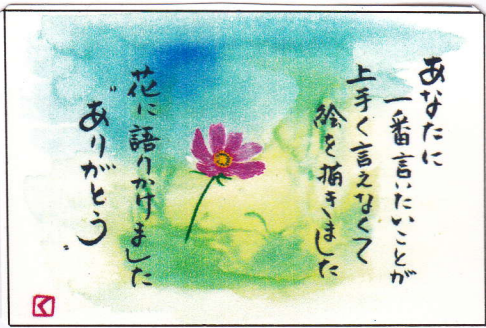 あなたに
一番言いたいことが
上手く言えなくて
絵を描きました
花に語りかけました
"ありがとう"
く